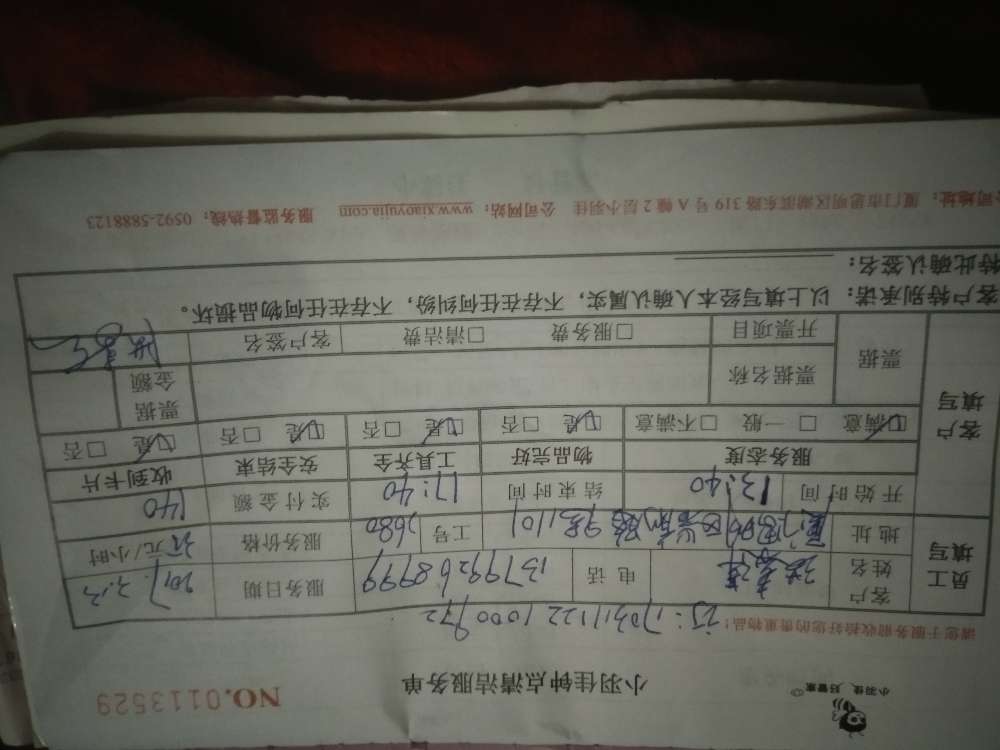 小羽佳 好管家
小羽佳钟点清洁服务单
NO.0113529
请您于服务前收拾好您的贵重物品!
员工填写 客户姓名 电话 13799268999 服务日期 2017.2.13
地址 工号 2680 服务价格 35元/小时
客户填写 开始时间 13:40 结束时间 17:40 实付金额 140
服务态度 物品完好 工具齐全 安全结束 收到卡片
☑满意 □一般 □不满意 ☑是 □否 ☑是 □否 ☑是 □否 ☑是 □否
票据 票据名称 票据金额
开票项目 □服务费 □清洁费 客户签名
客户特别承诺:以上填写经本人确认属实,不存在任何纠纷,不存在任何物品损坏。
特此确认签名:
公司地址:厦门市思明区湖滨东路319号A幢2层小羽佳 公司网站:www.xiaoyujia.com 服务监督热线:0592-5888123